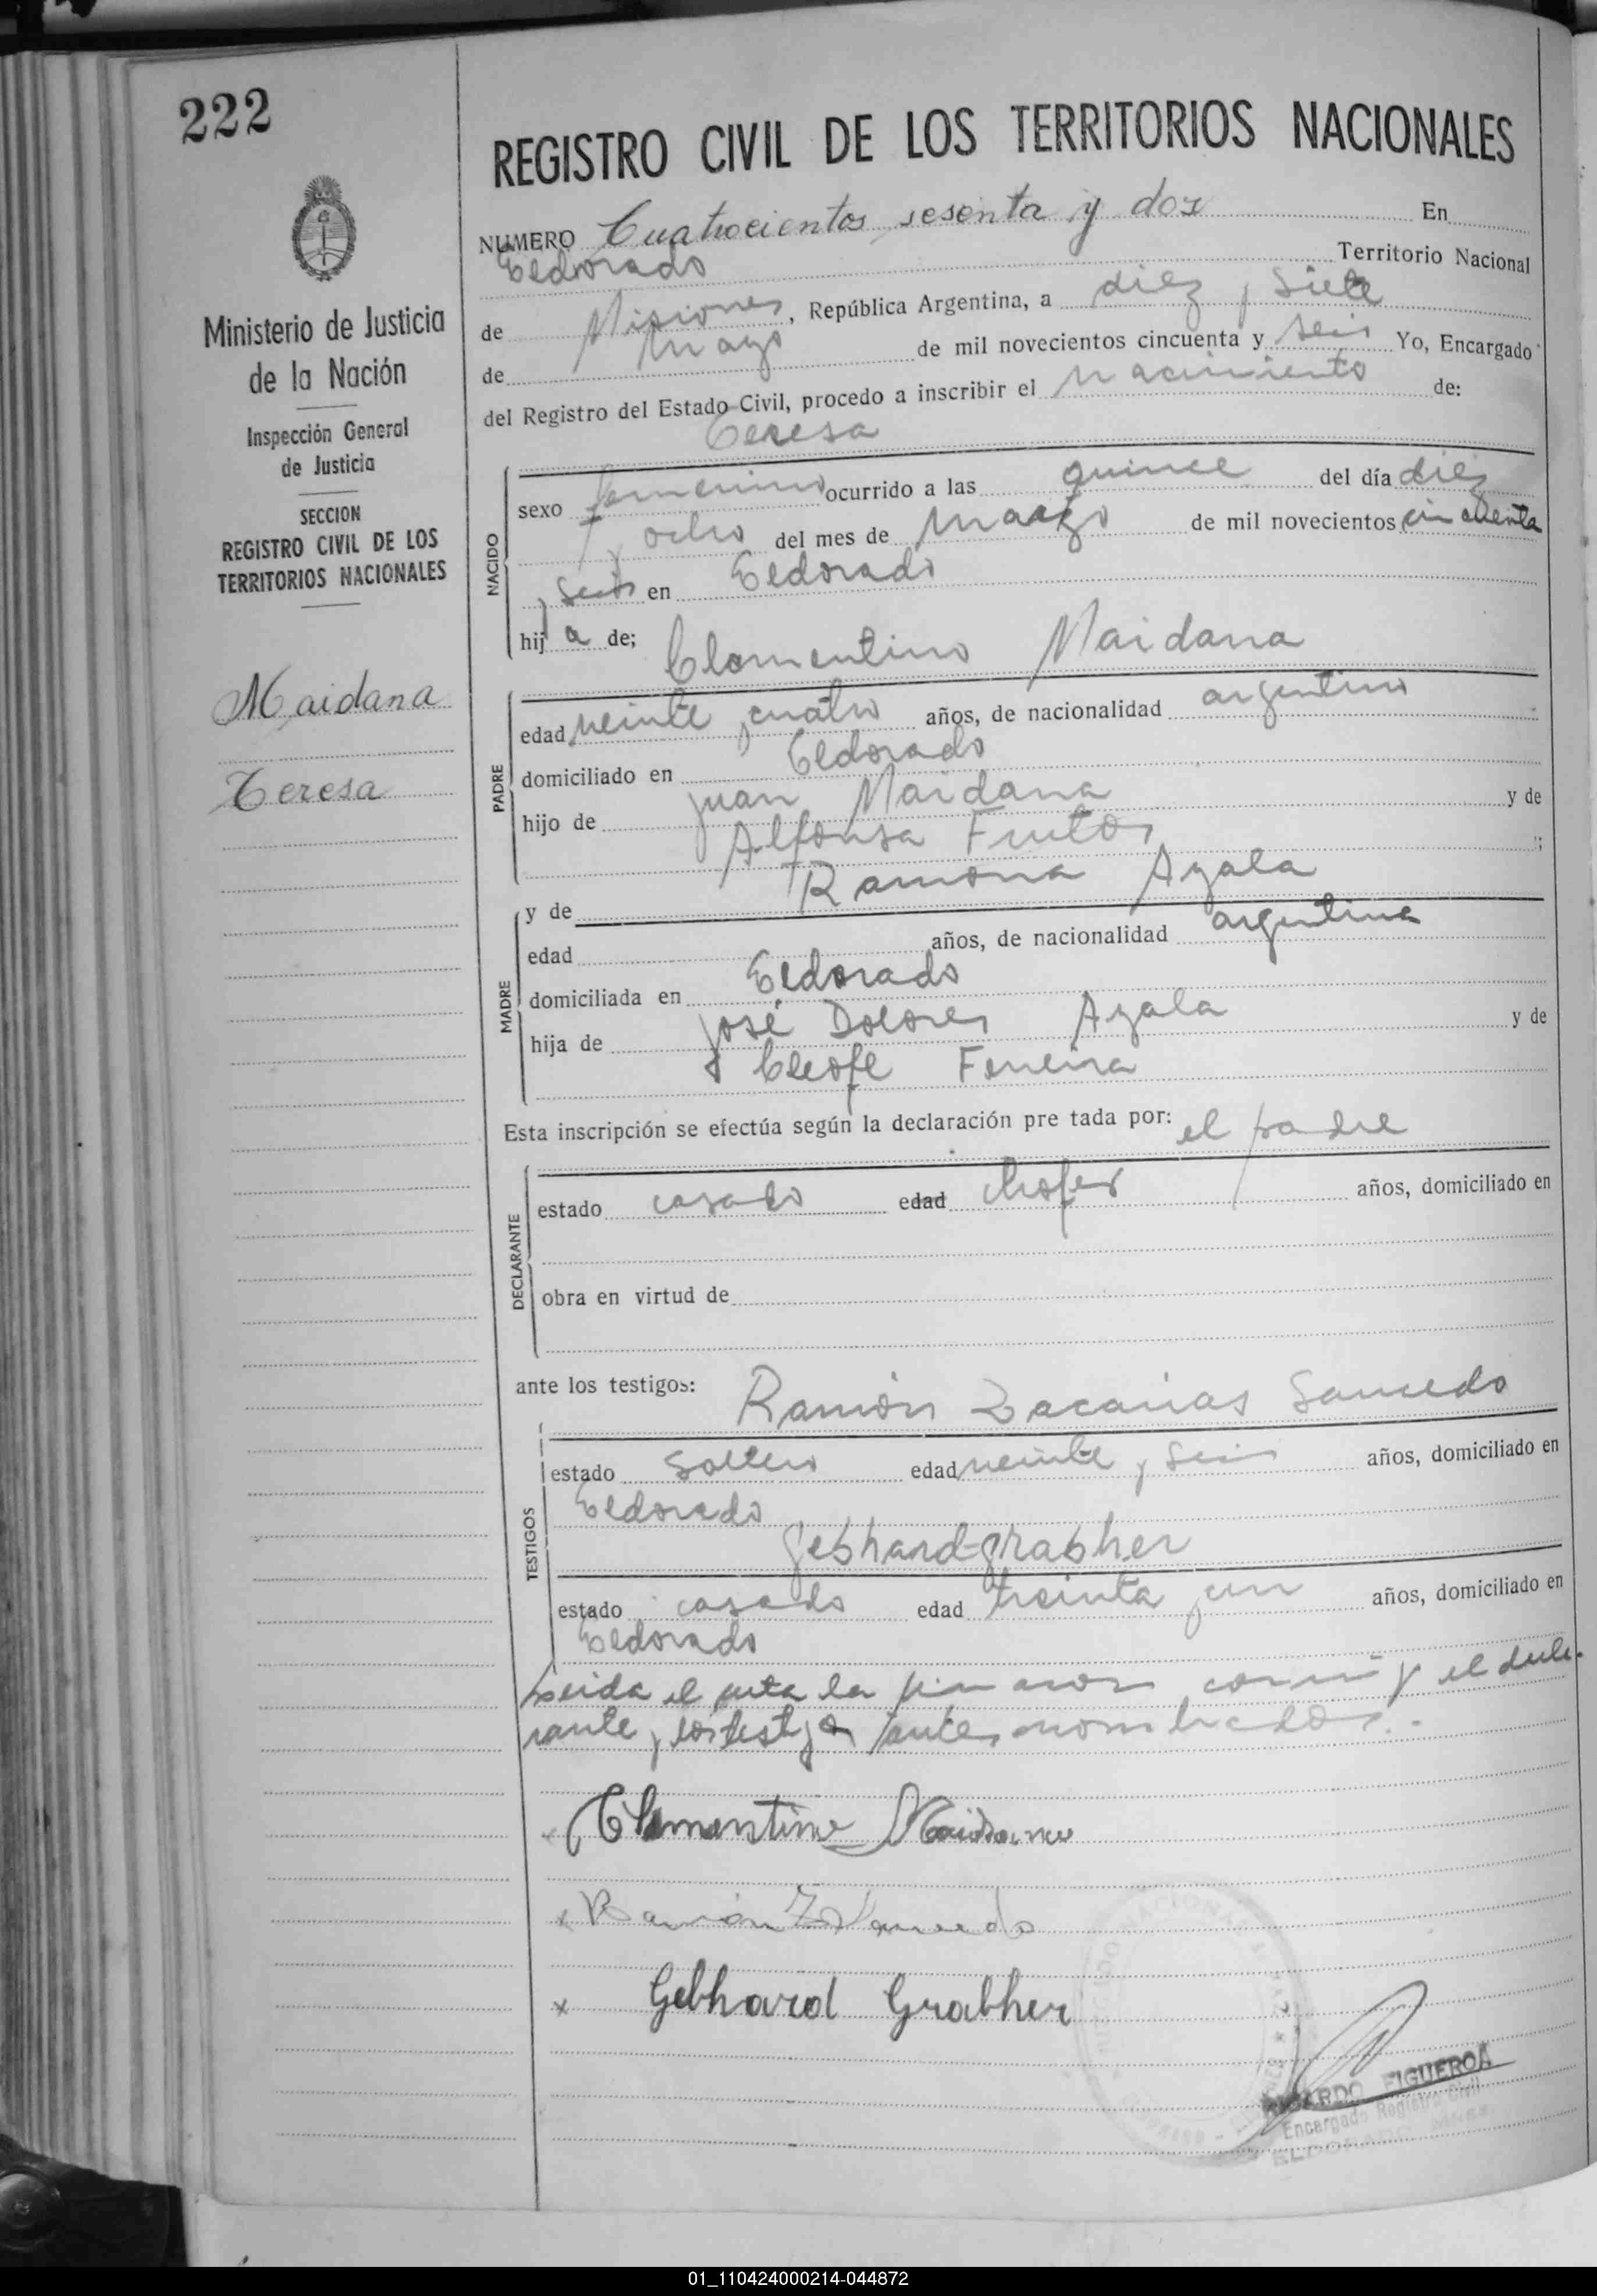 222
REGISTRO CIVIL DE LOS TERRITORIOS NACIONALES
Ministerio de Justicia
de la Nación
Inspección General
de Justicia
SECCION
REGISTRO CIVIL DE LOS
TERRITORIOS NACIONALES
Maidana
Teresa
NUMERO Cuatrocientos sesenta y dos En
Eldorado Territorio Nacional
de Misiones, República Argentina, a diez y siete
de mayo de mil novecientos cincuenta y seis Yo, Encargado
del Registro del Estado Civil, procedo a inscribir el nacimiento de:
Teresa
NACIDO
sexo femenino ocurrido a las quince del día diez
y ocho del mes de marzo de mil novecientos cincuenta
y seis en Eldorado
hij a de; Clementino Maidana
PADRE
edad veinte y cuatro años, de nacionalidad argentino
domiciliado en Eldorado
hijo de Juan Maidana y de
Alfonsa Frutos ;
y de Ramona Ayala
MADRE
edad años, de nacionalidad argentina
domiciliada en Eldorado
hija de José Dolores Ayala y de
Cleofe Ferreira
Esta inscripción se efectúa según la declaración pre tada por: el padre
DECLARANTE
estado casado edad chofer años, domiciliado en
obra en virtud de
ante los testigos: Ramón Zacarias Saucedo
TESTIGOS
estado soltero edad veinte y seis años, domiciliado en
Eldorado
Gebhard Grabher
estado casado edad treinta y un años, domiciliado en
Eldorado
Leida el acta la firmaron conmigo el decla-
rante y los testigos antes nombrados.-
Clementino Maidana
x Ramón Z Saucedo
x Gebhard Grabher
RICARDO FIGUEROA
Encargado Registro Civil
ELDORADO
01_110424000214-044872